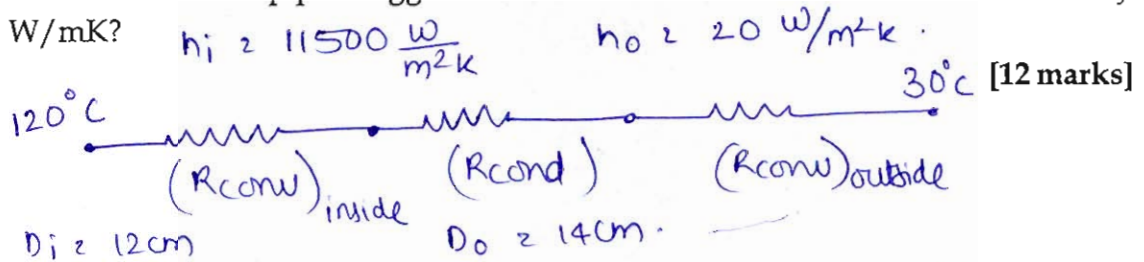 W/mK?
hi = 11500 W/m²K    ho = 20 W/m²K.
30°C [12 marks]
120°C
(Rconv)inside (Rcond) (Rconv)outside
Di = 12cm    Do = 14cm.